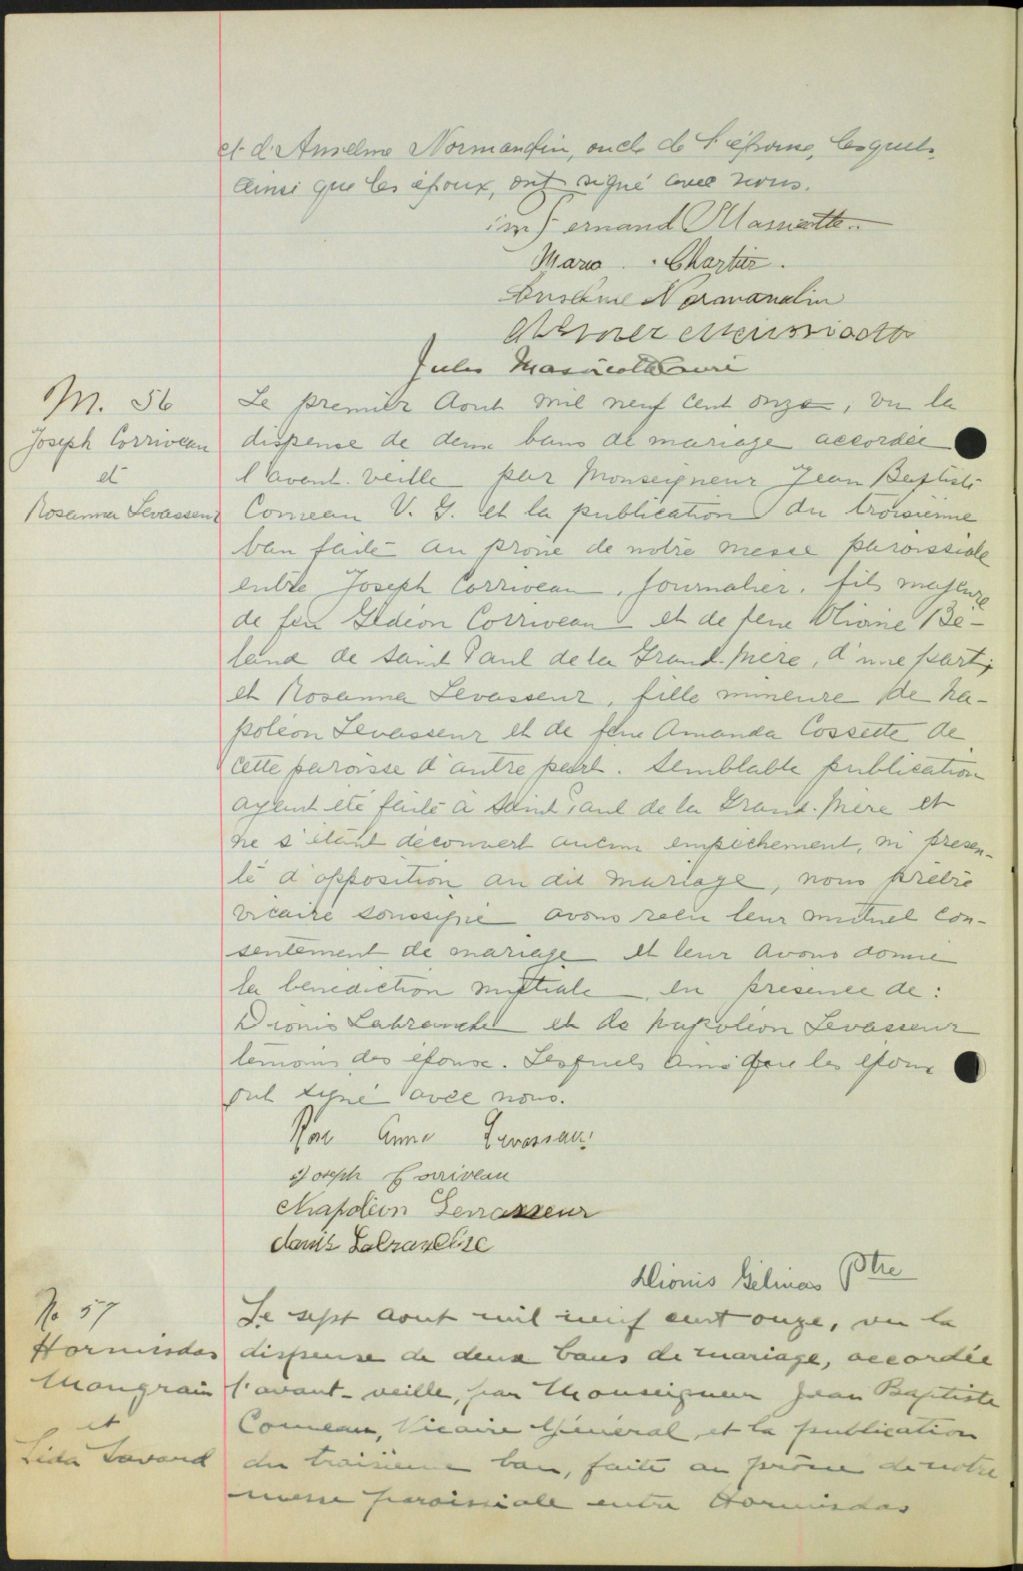 et d'Anselme Normandin, oncle de l'épouse, lesquels,
ainsi que les époux, ont signé avec nous.
Fernand Massicotte
Maria Chartier.
Anselme Normandin
Massicotte
Jules Massicotte Curé
M. 56
Joseph Corriveau
et
Rosanna Levasseur
Le premier Aout mil neuf cent onze, vu la
dispense de deux bans de mariage accordée
l'avant-veille par Monseigneur Jean Baptiste
Comeau V. G. et la publication du troisième
ban faite au prône de notre messe paroissiale
entre Joseph Corriveau, journalier, fils majeure
de feu Gédéon Corriveau et de feue Olivine Bé-
land de Saint Paul de la Grand-Mère, d'une part;
et Rosanna Levasseur, fille mineure de Na-
poléon Levasseur et de feue Amanda Cossette de
cette paroisse d'autre part. Semblable publication
ayant été faite à Saint Paul de la Grand-Mère et
ne s'étant découvert aucun empêchement, ni présen-
té d'opposition au dit mariage, nous prêtre
vicaire soussigné avons reçu leur mutuel con-
sentement de mariage et leur avons donné
la bénédiction nuptiale en présence de:
Dionis Labranche et de Napoléon Levasseur
témoins des épouse. Lesquels ainsi que les époux
ont signé avec nous.
Rose Anna Levasseur
Joseph Corriveau
Napoléon Levasseur
Denis Labranche
Dionis Gélinas Ptre
No 57
Hormisdas
Mongrain
et
Lida Savard
Le sept aout mil neuf cent onze, vu la
dispense de deux bans de mariage, accordée
l'avant-veille, par Monseigneur Jean Baptiste
Comeau, Vicaire Général, et la publication
du troisième ban, faite au prône de notre
messe paroissiale entre Hormisdas